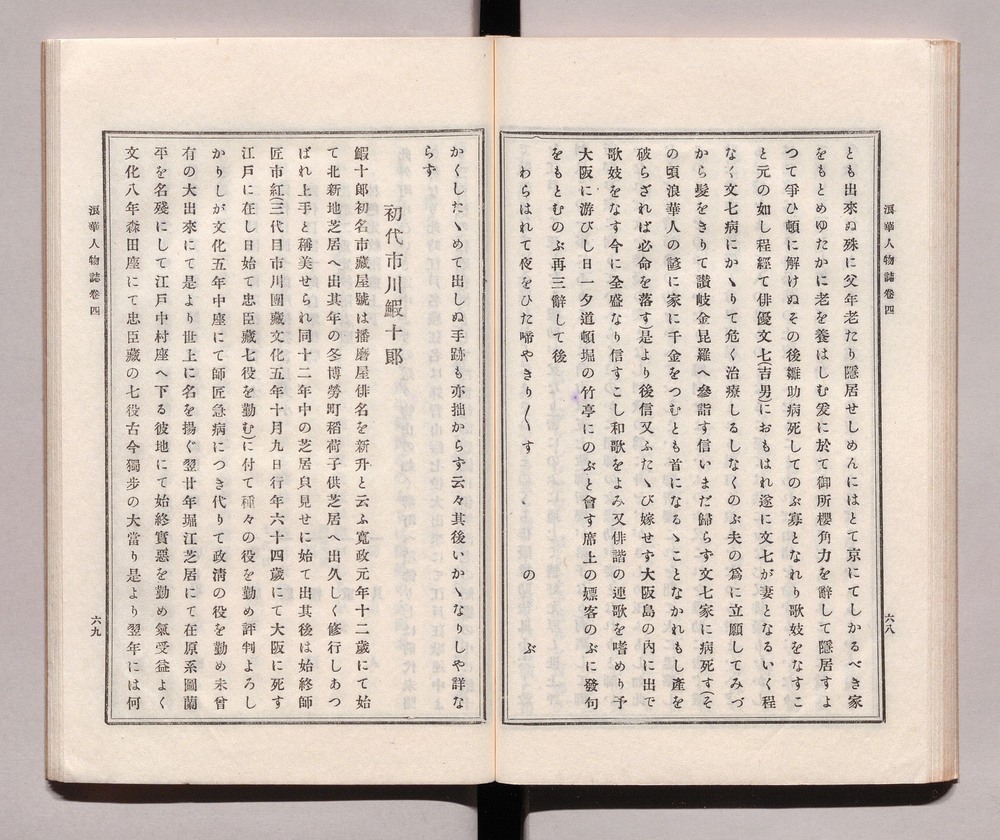 浪華人物誌卷四
六八
とも出來ぬ殊に父年老たり隱居せしめんにはとて京にてしかるべき家
をもとめゆたかに老を養はしむ爰に於て御所櫻角力を辭して隱居すよ
つて爭ひ頓に解けぬその後雛助病死してのぶ寡となれり歌妓をなすこ
と元の如し程經て俳優文七(吉男)におもはれ遂に文七が妻となるいく程
なく文七病にかゝりて危く治療しるしなくのぶ夫の爲に立願してみづ
から髮をきりて讃岐金昆羅へ參詣す信いまだ歸らす文七家に病死す(そ
の頃浪華人の諺に家に千金をつむとも首になるゝことなかれもし產を
破らざれば必命を落す)是より後信又ふたゝび嫁せす大阪島の內に出で
歌妓をなす今に全盛なり信すこし和歌をよみ又俳諧の連歌を嗜めり予
大阪に游びし日一夕道頓堀の竹亭にのぶと會す席上の嫖客のぶに發句
をもとむのぶ再三辭して後
わらはれて夜をひた啼やきり〱す のぶ
かくしたゝめて出しぬ手跡も亦拙からず云々其後いかゝなりしや詳な
らず
初代市川鰕十郎
鰕十郎初名市藏屋號は播磨屋俳名を新升と云ふ寬政元年十二歲にて始
て北新地芝居へ出其年の冬博勞町稻荷子供芝居へ出久しく修行しあつ
ぱれ上手と稱美せられ同十二年中の芝居㒵見せに始て出其後は始終師
匠市紅(三代目市川團藏文化五年十月九日行年六十四歲にて大阪に死す
江戶に在し日始て忠臣藏七役を勤む)に付て種々の役を勤め評判よろし
かりしが文化五年中座にて師匠急病につき代りて政淸の役を勤め未曾
有の大出來にて是より世上に名を揚ぐ翌廿年堀江芝居にて在原系圖蘭
平を名殘にして江戶中村座へ下る彼地にて始終實惡を勤め氣受益よく
文化八年森田座にて忠臣藏の七役古今獨步の大當り是より翌年には何
浪華人物誌卷四
六九